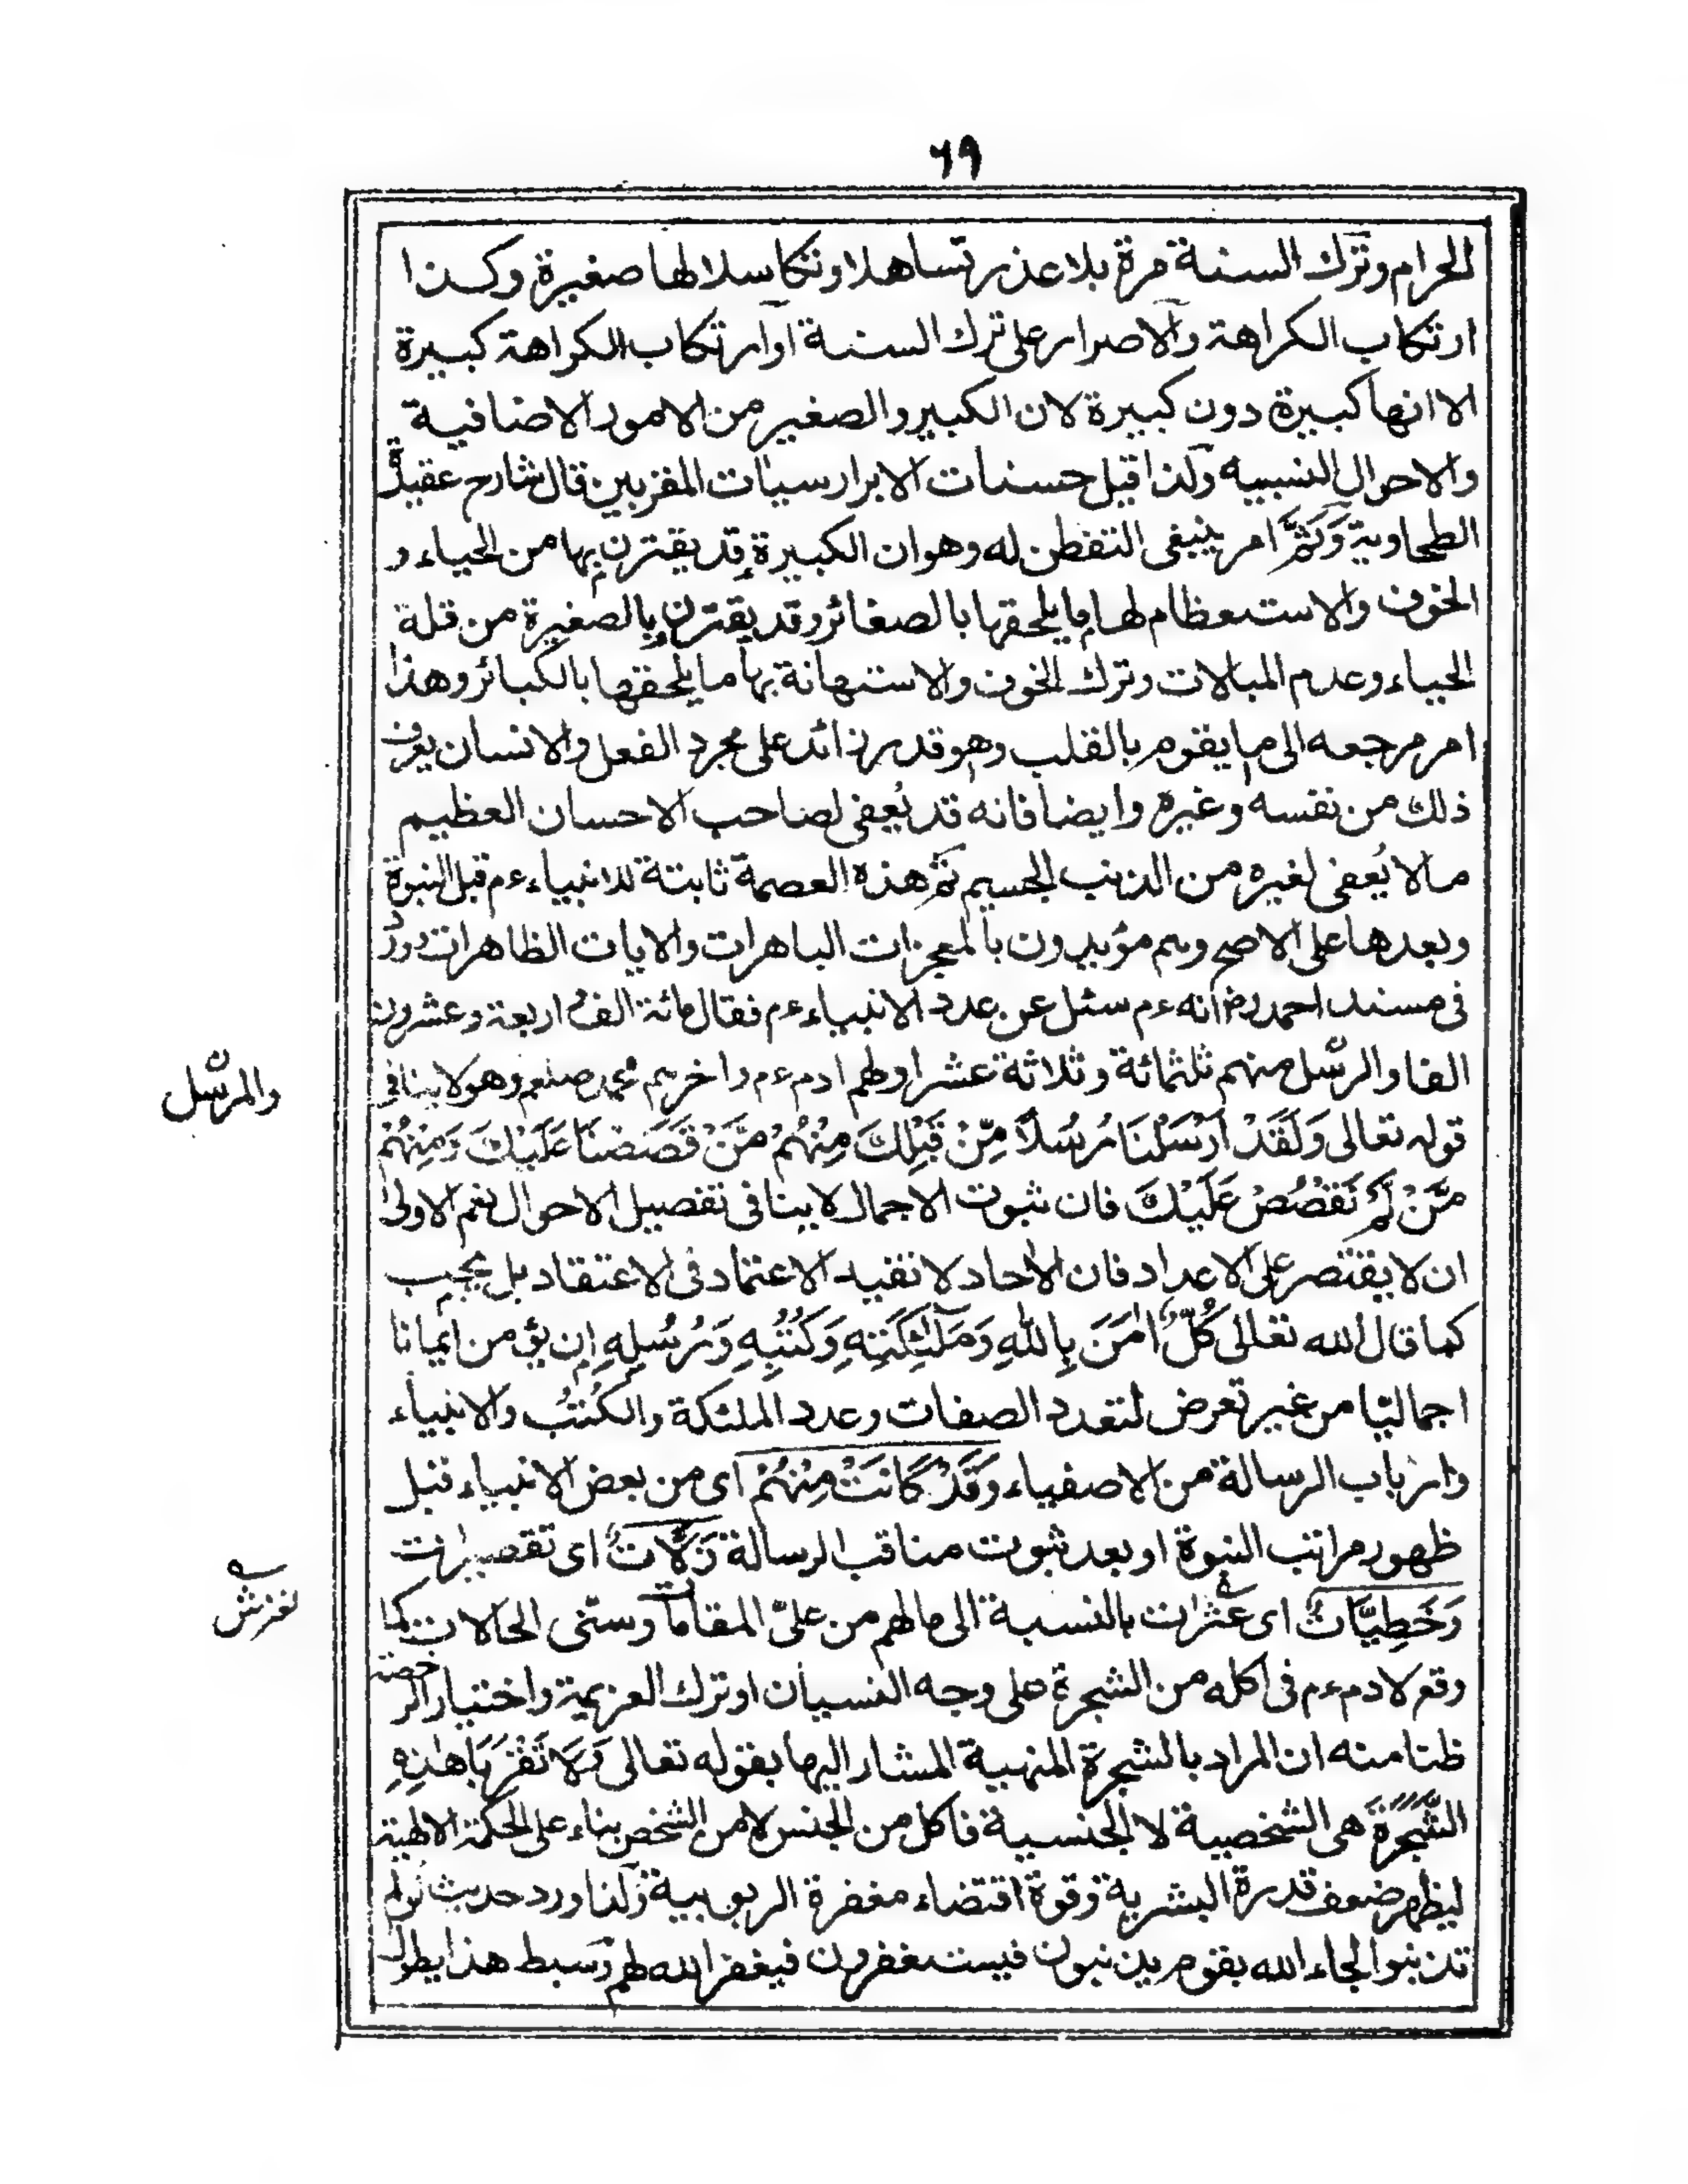 ٦٩
الحرام وترك السنة مرة بلا عذر تساهلا وتكاسلا لها صغيرة وكذا
ارتكاب الكراهة والاصرار على ترك السنة او ارتكاب الكراهة كبيرة
الا انها كبيرة دون كبيرة لان الكبير والصغير من الامور الاضافية
والاحوال النسبيه ولذا قيل حسنات الابرار سيات المقربين قال شارح عقيدة
الطحاوية وَثَمَّ امر ينبغى التفطن له وهو ان الكبيرة قد يقترن بها من الحياء و
الخوف والاستعظام لها ما يلحقها بالصغائر وقد يقترن بالصغيرة من قلة
الحياء وعدم المبالات وترك الخوف والاستهانة بها ما يلحقها بالكبائر وهذا
امر مرجعه الى ما يقوم بالقلب وهو قدر زائد على مجرد الفعل والانسان يعرف
ذلك من نفسه وغيره وايضا فانه قد يُعفى لصاحب الاحسان العظيم
مالا يُعفى لغيره من الذنب الجسيم ثم هذه العصمة ثابتة للانبياء ءم قبل النبوة
وبعدها على الاصح وهم مؤيدون بالمعجزات الباهرات والايات الظاهرات وورد
فى مسند احمد رض انه ءم سئل عن عدد الانبياء ءم فقال مائة الف اربعة وعشرون
الفا والرسل منهم ثلثمائة وثلاثة عشر اولهم ادم ءم واخرهم محمد صلعم وهو لا ينافى
قوله تعالى وَلَقَدْ اَرْسَلْنَا رُسُلًا مِّنْ قَبْلِكَ مِنْهُمْ مَّنْ قَصَصْنَا عَلَيْكَ وَمِنْهُمْ
مَّنْ لَّمْ نَقْصُصْ عَلَيْكَ فان ثبوت الاجمال لا ينافى تفصيل الاحوال نعم الاولى
ان لا يقتصر على الاعداد فان الاحاد لا تفيد الاعتماد فى الاعتقاد بل يجب
كما قال الله تعالى كُلٌّ اٰمَنَ بِاللّٰهِ وَمَلٰٓئِكَتِهٖ وَكُتُبِهٖ وَرُسُلِهٖ ان يؤمن ايمانا
اجماليّا من غير تعرض لتعدد الصفات وعدد الملئكة والكُتُب والانبياء
وارباب الرسالة من الاصفياء وَقَدْ كَانَتْ مِنْهُمْ اى من بعض الانبياء قبل
ظهور مراتب النبوة او بعد ثبوت مناقب الرسالة زَلَّاتٌ اى تقصيرات
وَخَطِيّاٰتٌ اى عثرات بالنسبة الى مالهم من علىّ المقامات وسنّى الحالات كما
وقع لادم ءم فى اكله من الشجرة على وجه النسيان او ترك العزيمة واختيار الرخصة
ظنا منه ان المراد بالشجرة المنهية المشار اليها بقوله تعالى وَلَا تَقْرَبَا هٰذِهِ
الشَّجَرَةَ هى الشخصية لا الجنسية فاكل من الجنس لا من الشخص بناء على الحكمة الالهية
ليظهر ضعف قدرة البشرية وقوة اقتضاء مغفرة الربوبية ولذا ورد حديث لو لم
تذنبوا لجاء الله بقوم يذنبون فيستغفرون فيغفر الله لهم وبسط هذا يطول
والمرسّل
لغزش